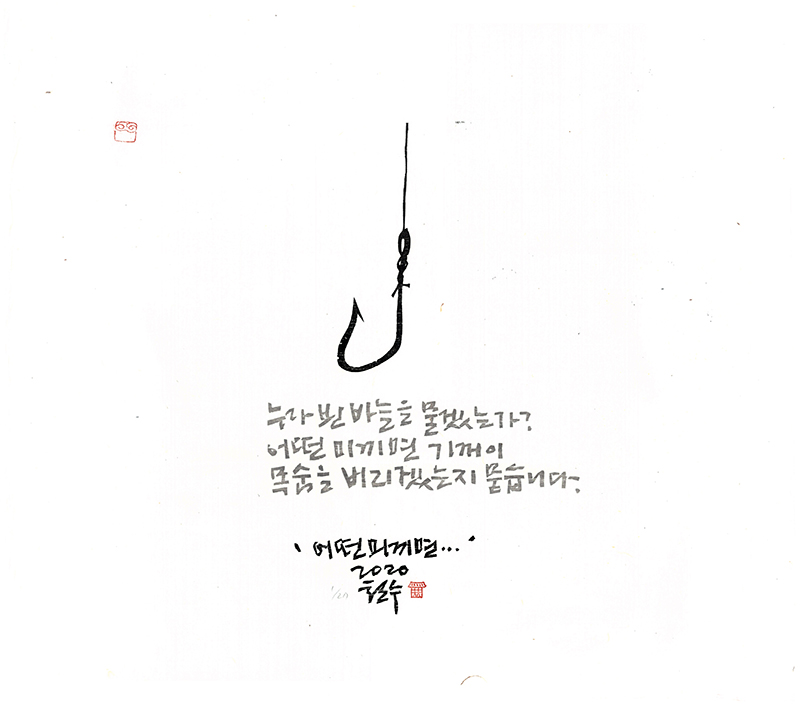 누가 빈 바늘을 물겠는가?
어떤 미끼면 기꺼이
목숨을 버리겠는지 묻습니다.
'어떤 미끼면...'
2020
철수